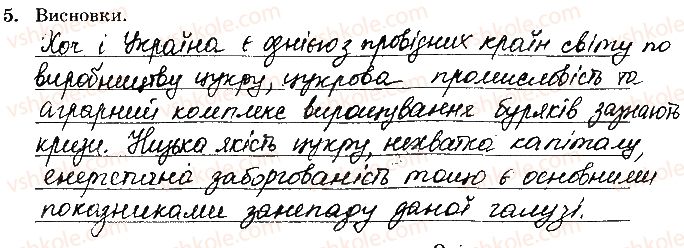 5. Висновки.
Хоч і Україна є однією з провідних країн світу по
виробництву цукру, цукрова промисловість та
аграрний комплекс вирощування буряків зазнають
кризи. Низька якість цукру, нехватка капіталу,
енергетична заборгованість тощо є основними
показниками занепаду даної галузі.